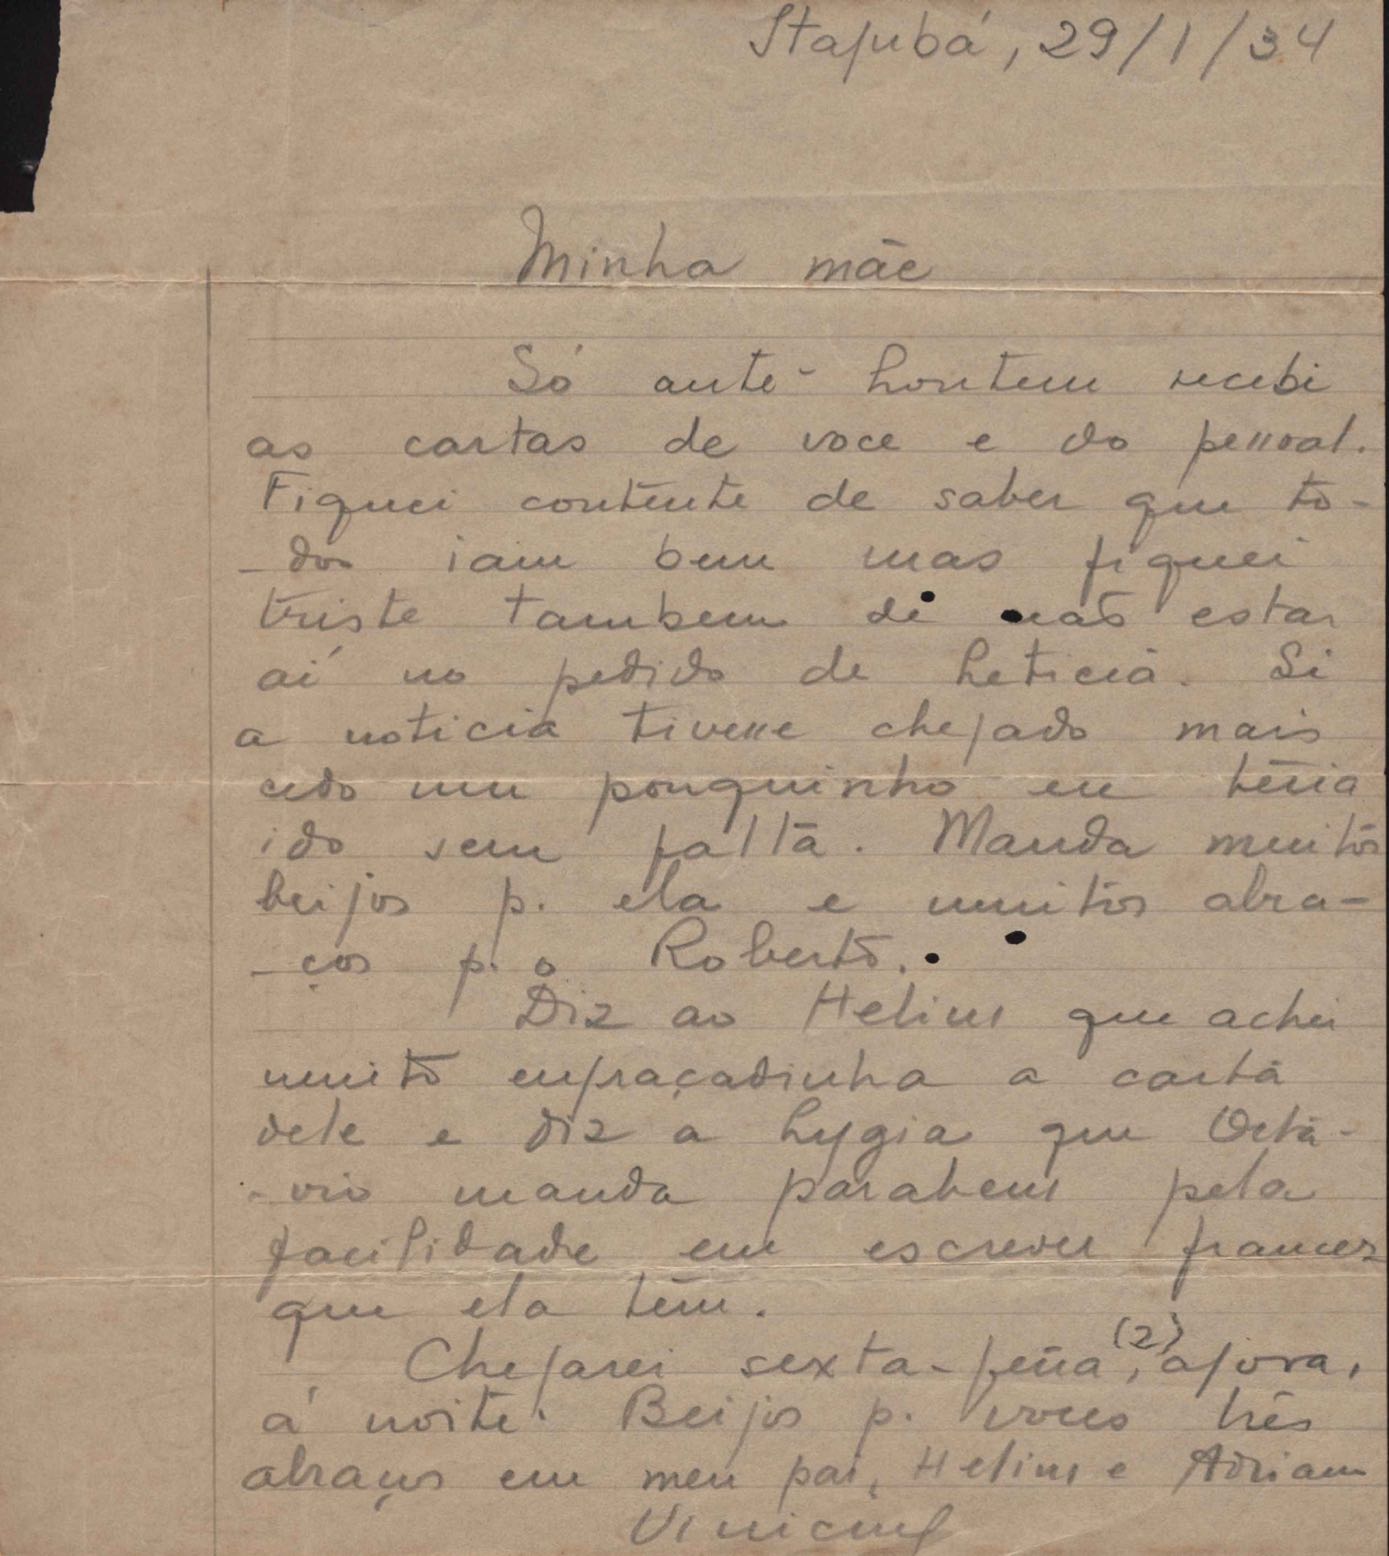 Itajubá, 29/1/34
Minha mãe
Só ante-hontem recebi
as cartas de voce e do pessoal.
Fiquei contente de saber que to-
-dos iam bem mas fiquei
triste tambem de não estar
aí no pedido de Leticia. Si
a noticia tivesse chegado mais
cedo um pouquinho eu teria
ido sem falta. Manda muitos
beijos p. ela e muitos abra-
-ços p. o Roberto.
Diz ao Helius que achei
muito engraçadinha a carta
dele e diz a Lygia que Octa-
-vio manda parabens pela
facilidade em escrever francez
que ela tem.
Chegarei sexta-feira (2), agora,
á noite. Beijos p. voces três
abraços em meu pai, Helius e Adriam
Vinicius